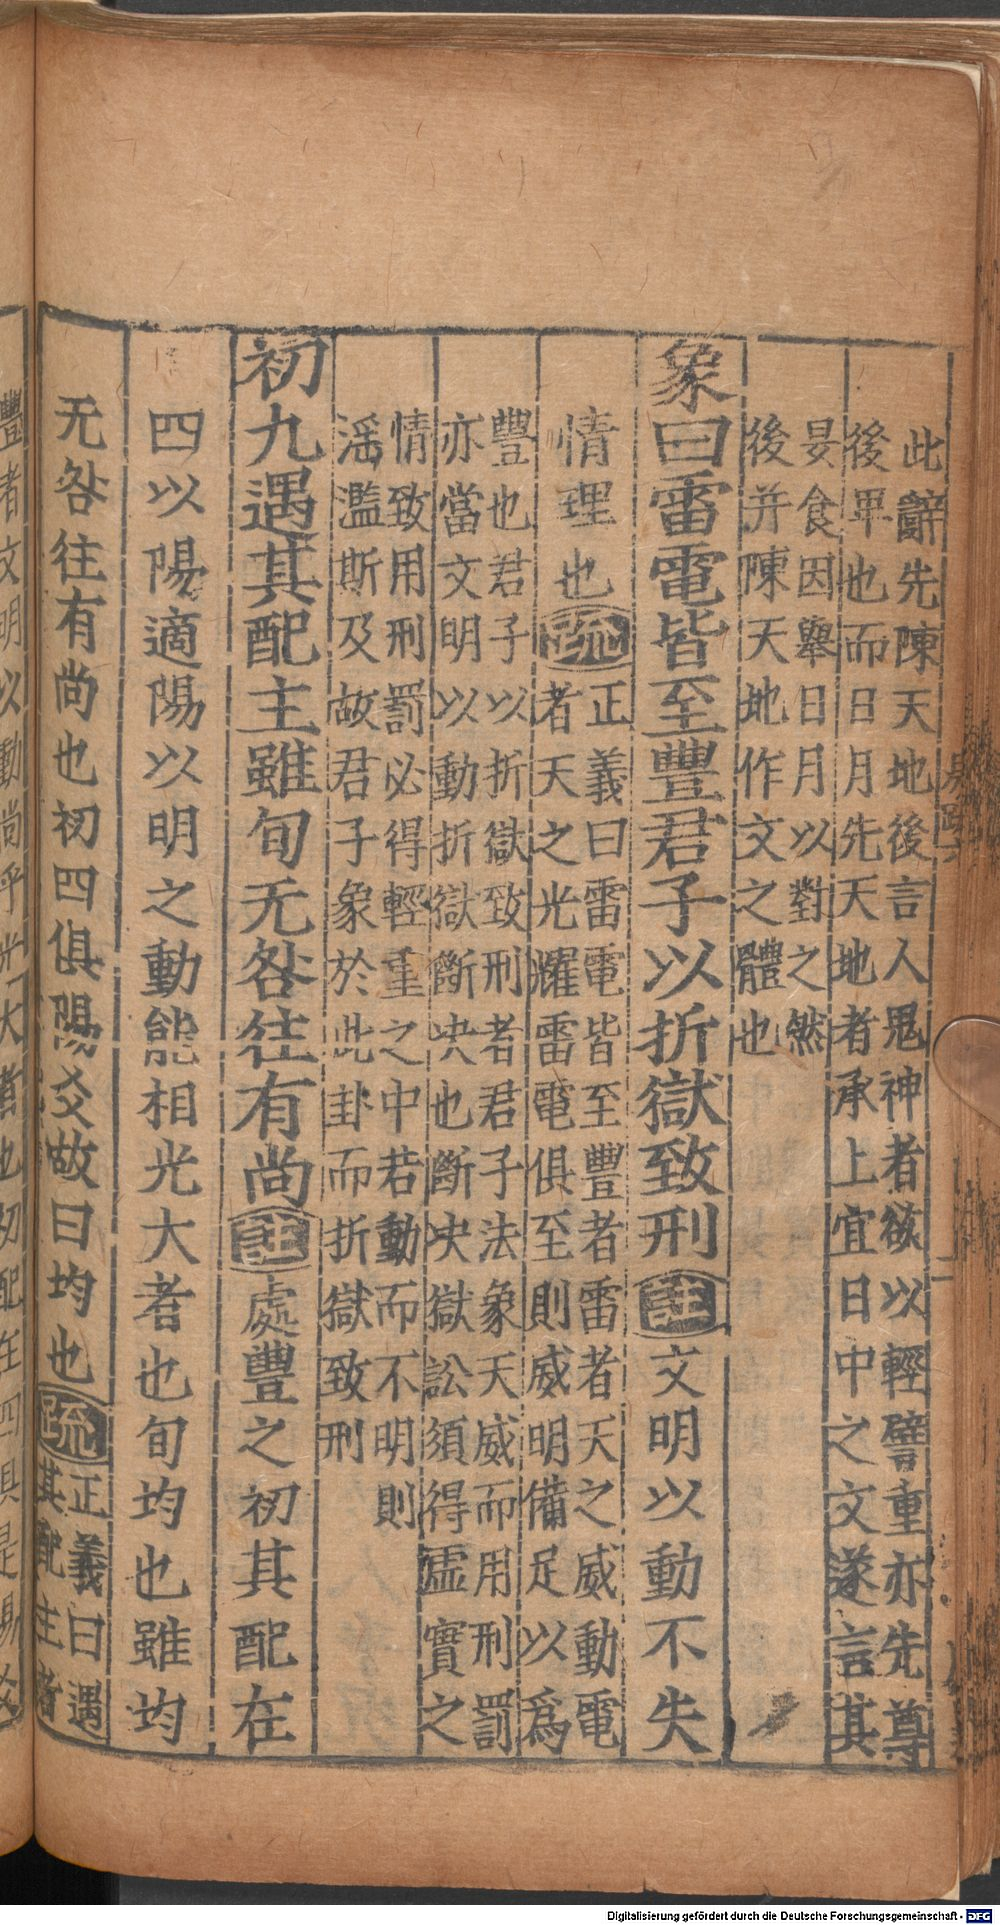 此辭先陳天地後言人鬼神者欲以輕譬重亦先尊
後畢也而日月先天地者承上宜日中之文遂言其
昃食因舉日月以對之然
後并陳天地作文之體也
象曰雷電皆至豐君子以折獄致刑註文明以動不失
情理也疏正義曰雷電皆至豐者雷者天之威動電
者天之光耀雷電俱至則威明備足以爲
豐也君子以折獄致刑者君子法象天威而用刑罰
亦當文明以動折獄斷决也斷决獄訟須得虛實之
情致用刑罰必得輕重之中若動而不明則
滛濫斯及故君子象於此卦而折獄致刑
初九遇其配主雖旬无咎往有尚註處豐之初其配在
四以陽適陽以明之動能相光大者也旬均也雖均
无咎往有尚也初四俱陽爻故曰均也疏正義曰遇
其配主者
豐者文明以動尚乎光大者也初配在四俱是陽爻
Digitalisierung gefördert durch die Deutsche Forschungsgemeinschaft - DFG